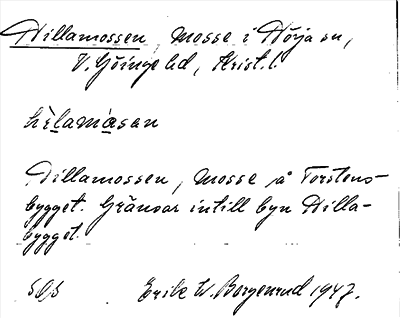 Hillamossen, Mosse i Hörja sn,
V. Göinge hd, Krist. l.
hìlamåsan
Hillamossen, mosse på Torstens-
bygget. Gränsar intill byn Hilla-
bygget.
Erik W. Borgenrud 1947.